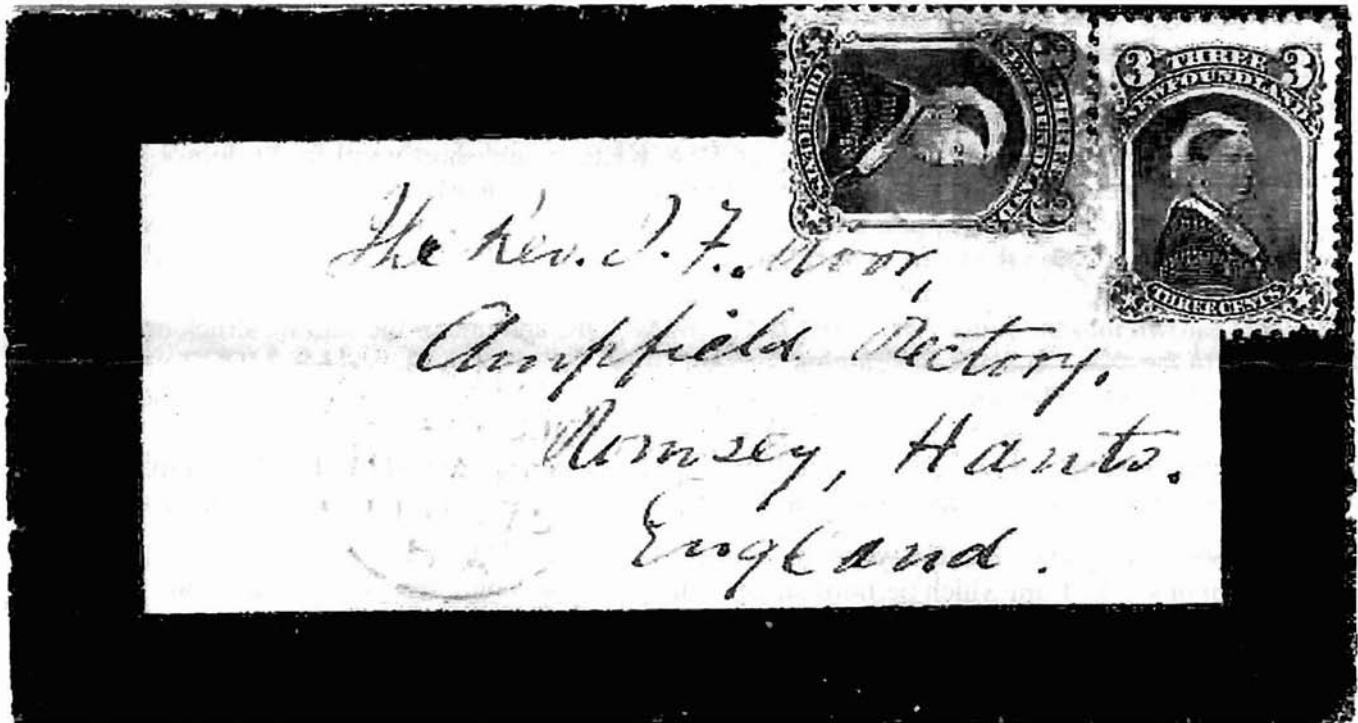 3 THREE 3
NEWFOUNDLAND
THREE CENTS
The Rev. J. F. Moor,
Ampfield Rectory,
Romsey, Hants.
England.